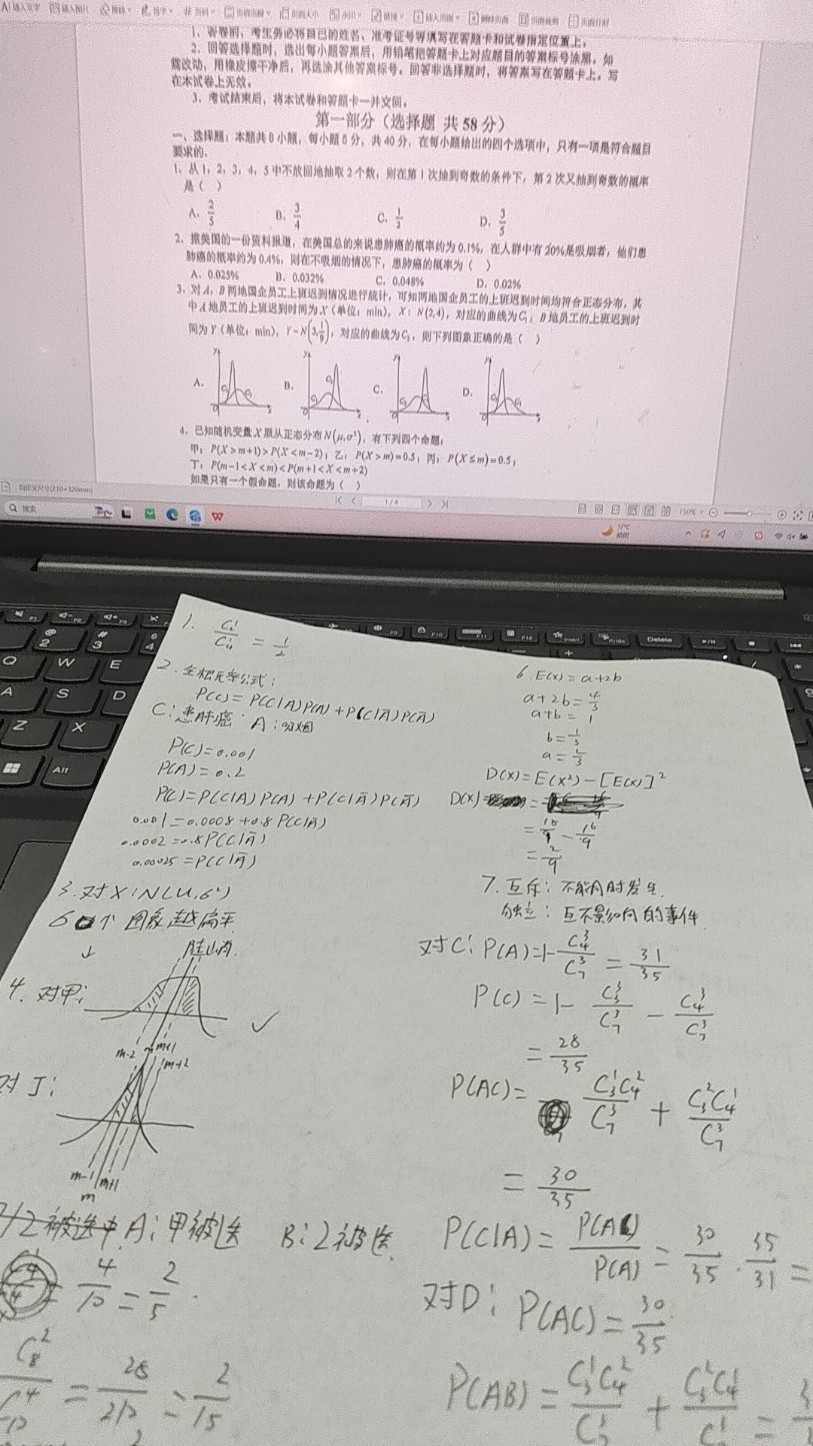 1、答卷前，考生务必将自己的姓名、准考证号等填写在答题卡和试卷指定位置上。
2、回答选择题时，选出每小题答案后，用铅笔把答题卡上对应题目的答案标号涂黑。如
需改动，用橡皮擦干净后，再选涂其他答案标号。回答非选择题时，将答案写在答题卡上。写
在本试卷上无效。
3、考试结束后，将本试卷和答题卡一并交回。
第一部分（选择题 共 58 分）
一、选择题：本题共 8 小题，每小题 5 分，共 40 分，在每小题给出的四个选项中，只有一项是符合题目
要求的.
1、从 1，2，3，4，5 中不放回地抽取 2 个数，则在第 1 次抽到奇数的条件下，第 2 次又抽到奇数的概率
是（ ）
A. 2/5 B. 3/4 C. 1/2 D. 3/5
2、据美国的一份资料报道，在美国总的来说患肺癌的概率约为 0.1%，在人群中有 20%是吸烟者，他们患
肺癌的概率约为 0.4%，则在不吸烟的情况下，患肺癌的概率为（ ）
A. 0.025% B. 0.032% C. 0.048% D. 0.02%
3、对 A，B 两地国企员工上班迟到情况进行统计，可知两地国企员工的上班迟到时间均符合正态分布，其
中 A 地员工的上班迟到时间为 X（单位：min），X：N(2,4)，对应的曲线为 C₁，B 地员工的上班迟到时
间为 Y（单位：min），Y~N(3,1/9)，对应的曲线为 C₂，则下列图象正确的是（ ）
A. B. C. D.
4、已知随机变量 X 服从正态分布 N(μ,σ²)，有下列四个命题：
甲：P(X>m+1)>P(X<m−2)；乙：P(X>m)=0.5；丙：P(X≤m)=0.5；
丁：P(m−1<X<m)<P(m+1<X<m+2)
如果只有一个假命题，则该命题为（ ）
1/4
150%
搜索
17℃
1. C₂¹/C₄¹ = 1/2
2. 全概率公式：
P(C)=P(C|A)P(A)+P(C|Ā)P(Ā)
C：患肺癌 A：吸烟
P(C)=0.001
P(A)=0.2
P(C)=P(C|A)P(A)+P(C|Ā)P(Ā)
0.001=0.0008+0.8P(C|Ā)
0.0002=0.8P(C|Ā)
0.00025=P(C|Ā)
3. 对X：N(u,6²)
6 个 图象越扁平
↓
4. 对甲：
m-2 m m+1
对丁：
m+2
m-1 m+1
m
A：甲被选 B：乙被选
4/10=2/5
=28/210=2/15
6. E(x)=a+2b
a+2b=4/3
a+b=1
b=1/3
a=2/3
D(x)=E(x²)-[E(x)]²
D(x)=
=18/9-16/9
=2/9
7. 互斥：不能同时发生.
独立：互不影响的事件
对C：P(A)=1-C₄³/C₇³=31/35
P(C)=1-C₃³/C₇³-C₄³/C₇³
=28/35
P(AC)=C₃¹C₄²/C₇³+C₃²C₄¹/C₇³
=30/35
P(C|A)=P(AC)/P(A)=30/35·35/31=
对D：P(AC)=30/35
P(AB)=C₃¹C₄²/C₇³+C₃²C₄¹